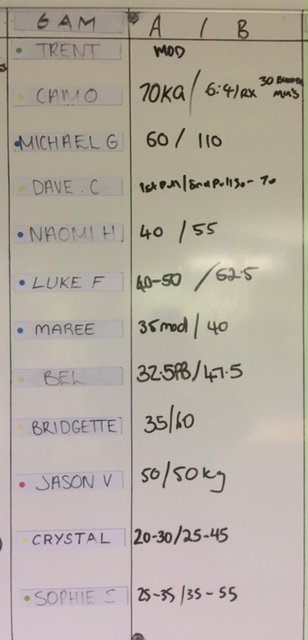 6AM A / B
TRENT MOD
CAMO 70KG / 6:4/RX 30
MICHAEL G 60 / 110
DAVE.C 1st Pull/2nd Pull 50-70
NAOMI H 40 / 55
LUKE F 40-50 / 52.5
MAREE 35mod / 40
BEL 32.5PB/47.5
BRIDGETTE 35/60
JASON V 50/50kg
CRYSTAL 20-30/25-45
SOPHIE 25-35/35-55